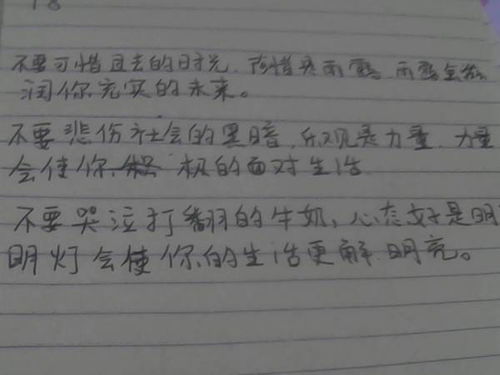 18
不要可惜过去的时光,珍惜是雨露,雨露会滋
润你充实的未来。
不要悲伤社会的黑暗,乐观是力量,力量
会使你积极的面对生活
不要哭泣打翻的牛奶,心态好是明
明灯会使你的生活更解明亮。